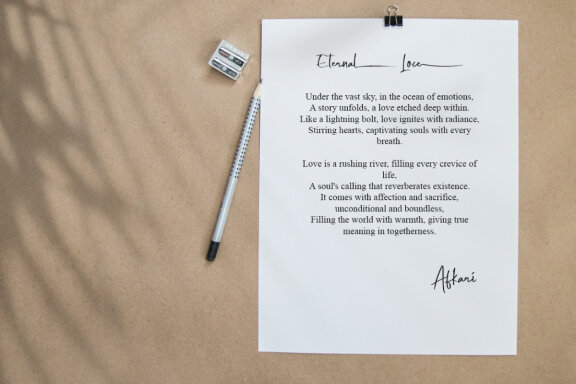 Eternal Love
Under the vast sky, in the ocean of emotions,
A story unfolds, a love etched deep within.
Like a lightning bolt, love ignites with radiance,
Stirring hearts, captivating souls with every
breath.
Love is a rushing river, filling every crevice of
life,
A soul's calling that reverberates existence.
It comes with affection and sacrifice,
unconditional and boundless,
Filling the world with warmth, giving true
meaning in togetherness.
Afkani